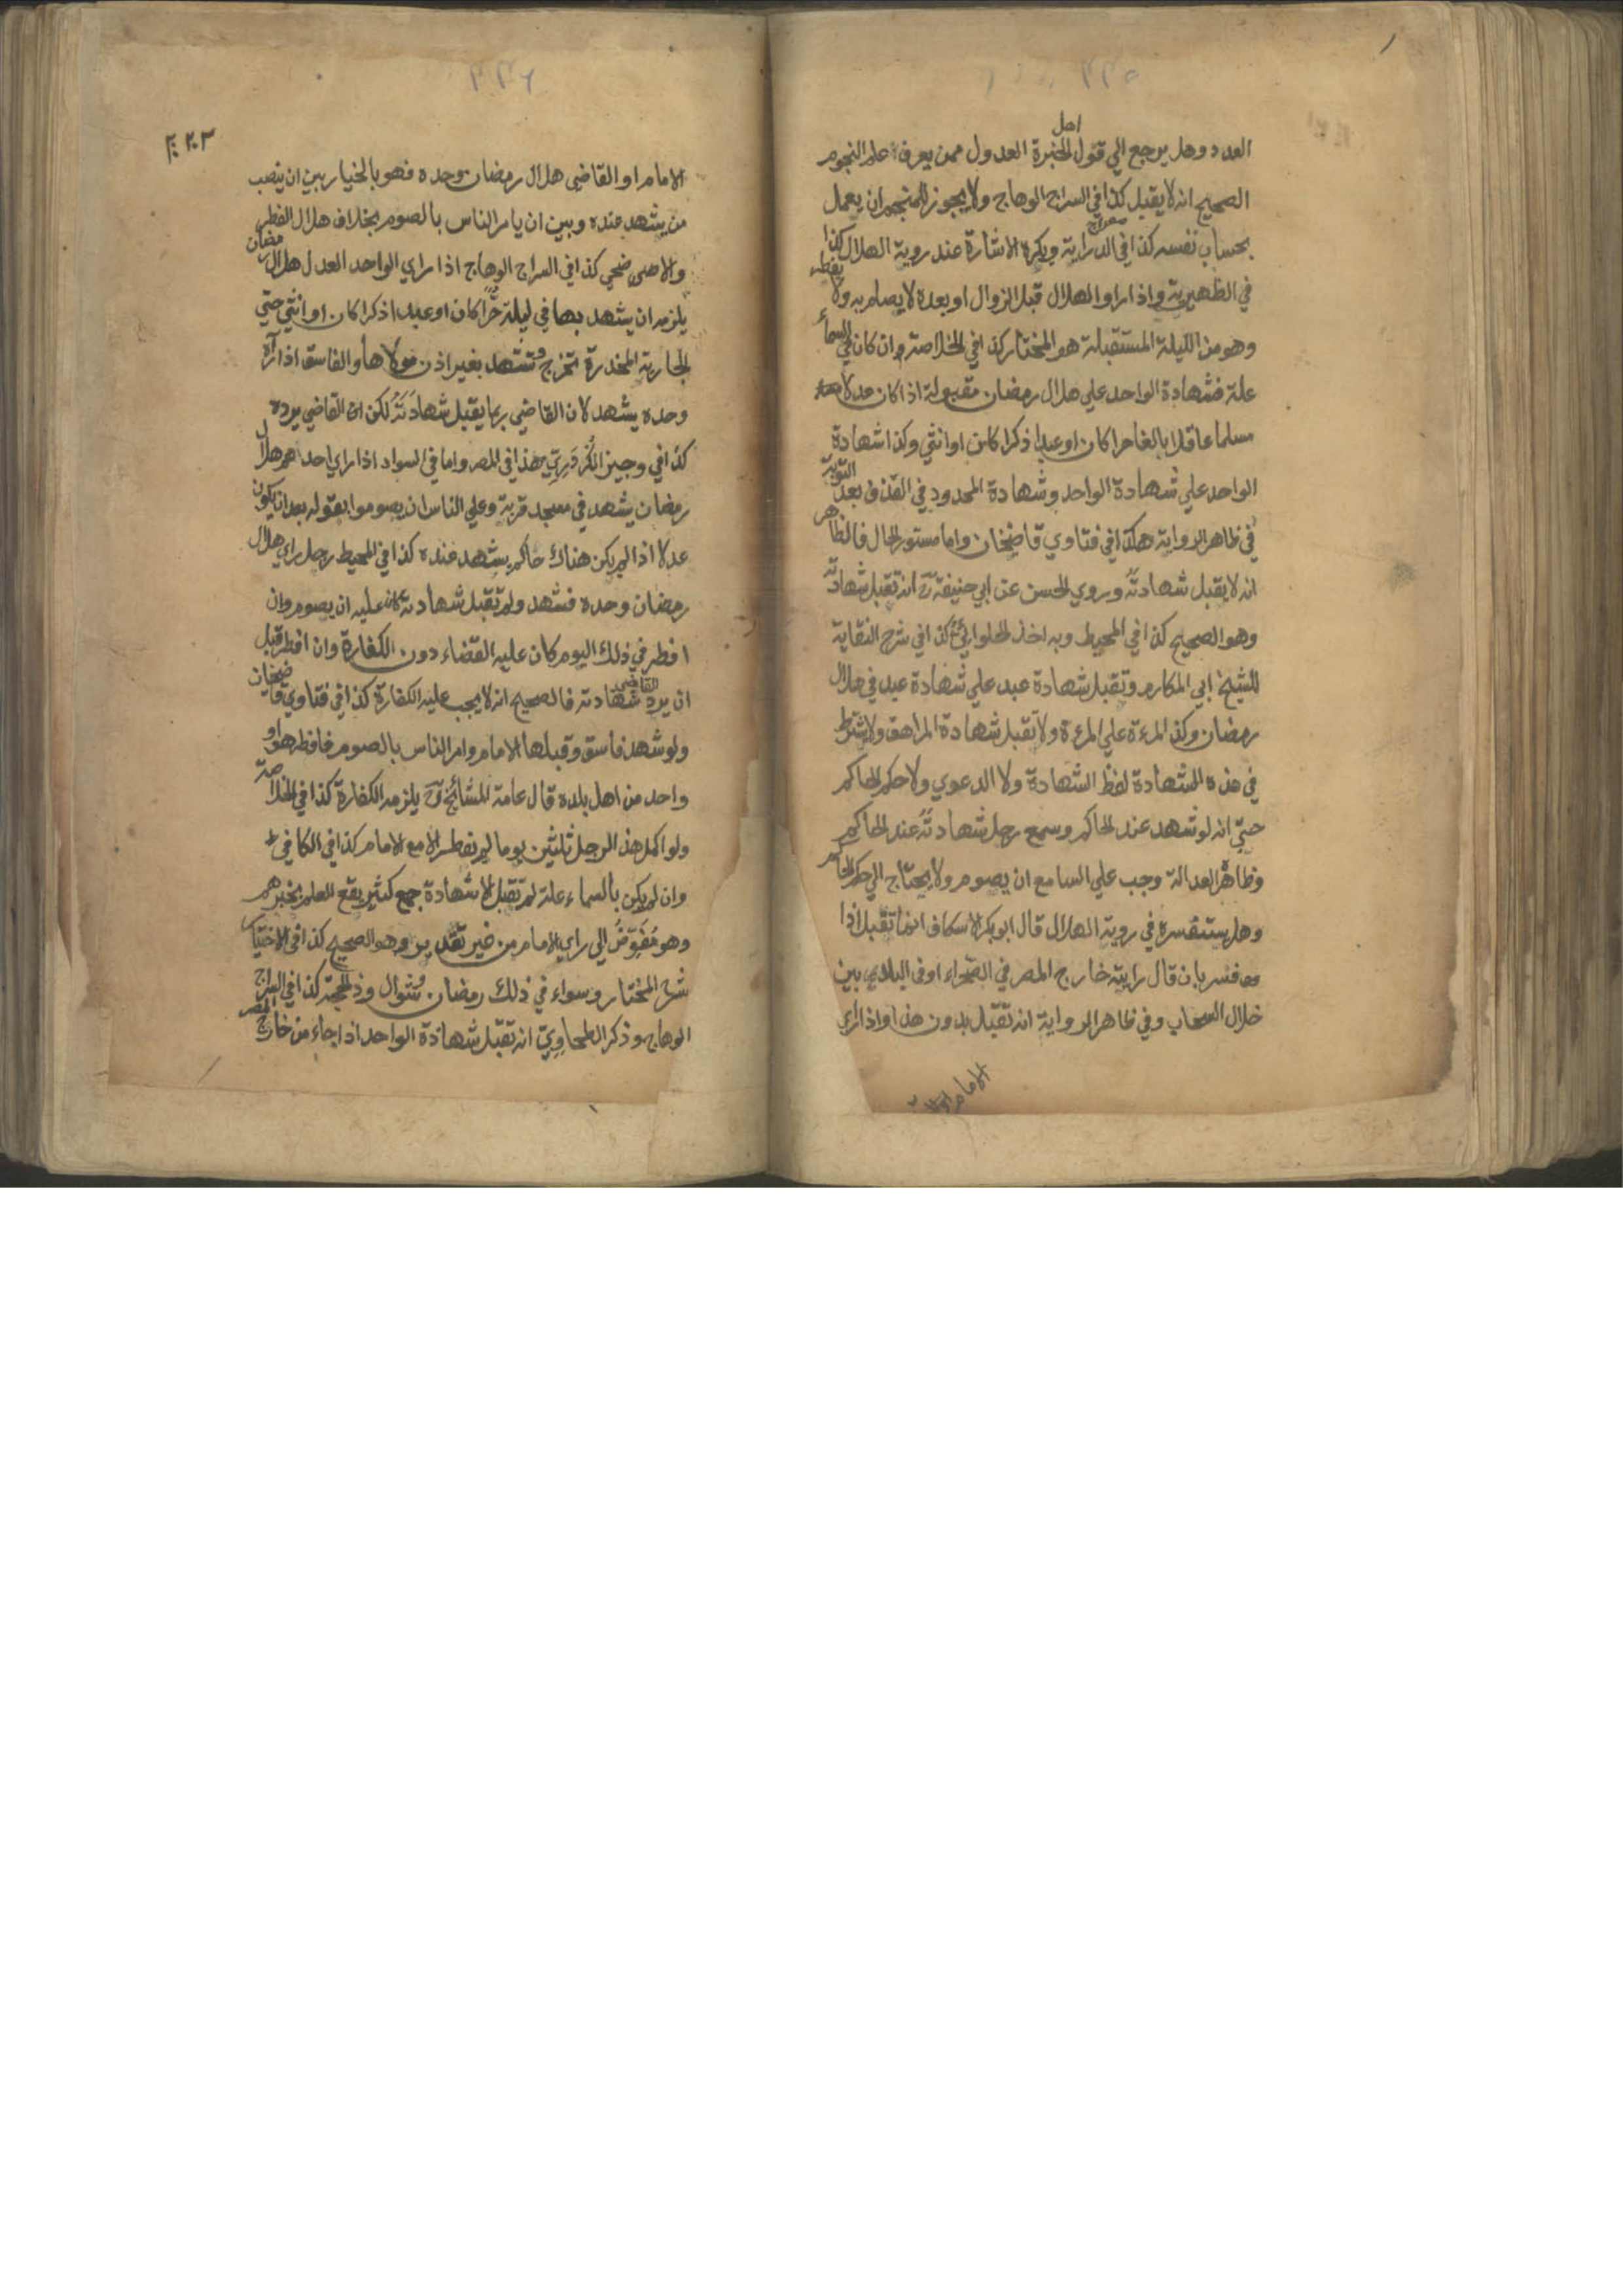 العدد وهل يرجع الي قول اهل الخبرة العدول ممن يعرف علم النجوم
الصحيح انه لا يقبل كذا في السراج الوهاج ولا يجوز للمنجم ان يعمل
بحساب نفسه كذا في معراج الدراية ويكره الاشارة عند روية الهلال كذا
في الظهيرية واذا راوا الهلال قبل الزوال او بعده لا يصام به ولا يفطر
وهو من الليلة المستقبلة هو المختار كذا في الخلاصة وان كان في السماء
علة فشهادة الواحد علي هلال رمضان مقبولة اذا كان عدلا
مسلما عاقلا بالغا حرا كان او عبدا ذكرا كان او انثي وكذا شهادة
الواحد علي شهادة الواحد وشهادة المحدود في القذف بعد التوبة
في ظاهر الرواية هكذا في فتاوي قاضيخان واما مستور الحال فالظاهر
انه لا يقبل شهادته وروي الحسن عن ابي حنيفة رح انه تقبل شهادته
وهو الصحيح كذا في المحيط وبه اخذ الحلوائي كذا في شرح النقاية
للشيخ ابي المكارم وتقبل شهادة عبد علي شهادة عبد في هلال
رمضان وكذا المرءة علي المرءة ولا تقبل شهادة المراهق ولا يشترط
في هذه الشهادة لفظ الشهادة ولا الدعوي ولا حكم الحاكم
حتي انه لو شهد عند الحاكم وسمع رجل شهادته عند الحاكم
وظاهره العدالة وجب علي السامع ان يصوم ولا يحتاج الي حكم الحاكم
وهل يستفسره في روية الهلال قال ابو بكر الاسكاف انما تقبل اذا
فسر بان قال رايته خارج المصر في الصحراء او في البلد بين
خلال السحاب وفي ظاهر الرواية انه تقبل بدون هذا واذا راي
الامام او
٢٠٢٣
الامام او القاضي هلال رمضان وحده فهو بالخيار بين ان ينصب
من يشهد عنده وبين ان يامر الناس بالصوم بخلاف هلال الفطر
والاضحي كذا في السراج الوهاج اذا راي الواحد العدل هلال رمضان
يلزمه ان يشهد بها في ليلته حرا كان او عبدا ذكرا كان او انثي حتي
الجارية المخدرة تخرج وتشهد بغير اذن مولاها والفاسق اذا رآه
وحده يشهد لان القاضي ربما يقبل شهادته لكن القاضي يرده
كذا في وجيز الكردري هذا في المصر واما في السواد اذا راي احدهم هلال
رمضان يشهد في مسجد قرية وعلي الناس ان يصوموا بقوله بعد ان يكون
عدلا اذا لم يكن هناك حاكم يشهد عنده كذا في المحيط رجل راي هلال
رمضان وحده فشهد ولم تقبل شهادته كان عليه ان يصوم وان
افطر في ذلك اليوم كان عليه القضاء دون الكفارة وان افطر قبل
ان يرد القاضي شهادته فالصحيح انه لا يجب عليه الكفارة كذا في فتاوي قاضيخان
ولو شهد فاسق وقبلها الامام وامر الناس بالصوم فافطر هو او
واحد من اهل بلده قال عامة المشائخ رح يلزمه الكفارة كذا في الخلاصة
ولو اكمل هذا الرجل ثلثين يوما لم يفطر الا مع الامام كذا في الكافي
وان لم يكن بالسماء علة لم تقبل الا شهادة جمع كثير يقع العلم بخبرهم
وهو مفوض الي راي الامام من غير تقدير وهو الصحيح كذا في الاختيار
شرح المختار وسواء في ذلك رمضان وشوال وذو الحجة كذا في السراج
الوهاج وذكر الطحاوي انه تقبل شهادة الواحد اذا جاء من خارج المصر